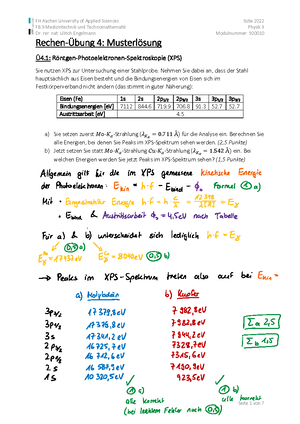 FH Aachen University of Applied Sciences
FB 9 Medizintechnik und Technomathematik
Dr. rer. nat. Ulrich Engelmann
SoSe 2022
Physik II
Modulnummer: 920010
Rechen-Übung 4: Musterlösung
Ü4.1: Röntgen-Photoelektronen-Spektroskopie (XPS)
Sie nutzen XPS zur Untersuchung einer Stahlprobe. Nehmen Sie dabei an, dass der Stahl
hauptsächlich aus Eisen besteht und die Bindungsenergien von Eisen sich im
Festkörperverbund nicht ändern (das stimmt in guter Näherung):
Eisen (Fe) 1s 2s 2p1/2 2p3/2 3s 3p1/2 3p3/2
Bindungsenergien [eV] 7112 844.6 719.9 706.8 91.3 52.7 52.7
Austrittsarbeit [eV] 4.5
a) Sie setzen zuerst Mo-Kα-Strahlung (λKα = 0.711 Å) für die Analyse ein. Berechnen Sie
alle Energien, bei denen Sie Peaks im XPS-Spektrum sehen werden. (2,5 Punkte)
b) Jetzt setzen Sie statt Mo-Kα-Strahlung Cu-Kα-Strahlung (λKα = 1.542 Å) ein. Bei
welchen Energien werden Sie jetzt Peaks im XPS-Spektrum sehen? (1,5 Punkte)
Allgemein gilt für die im XPS gemessene kinetische Energie
der Photoelektronen: Ekin = h·f − EBind − Φ Formel ① a)
Mit • Eingestrahlter Energie h·f = h·c/λ = 12398/λ[Å] = Eγ
• EBind & Austrittsarbeit Φ = 4,5 eV nach Tabelle
Für a) & b) unterscheidet sich lediglich h·f = Eγ
0,5 a)
0,5 b)
→ Peaks im XPS-Spektrum treten also auf bei Ekin =
a) Molybdän b) Kupfer
3p3/2 17 379,8 eV 7 982,8 eV
3p1/2 17 379,8 eV 7 982,8 eV
3s 17 341,2 eV 7 944,2 eV
2p3/2 16 725,7 eV 7 328,7 eV
2p1/2 16 712,6 eV 7 315,6 eV
2s 16 587,9 eV 7 190,9 eV
1s 10 320,5 eV 923,5 eV
Σa 2,5
Σb 1,5
① c) ① b)
alle korrekt alle korrekt
(bei leichtem Fehler noch 0,5)
Seite 1 von 7